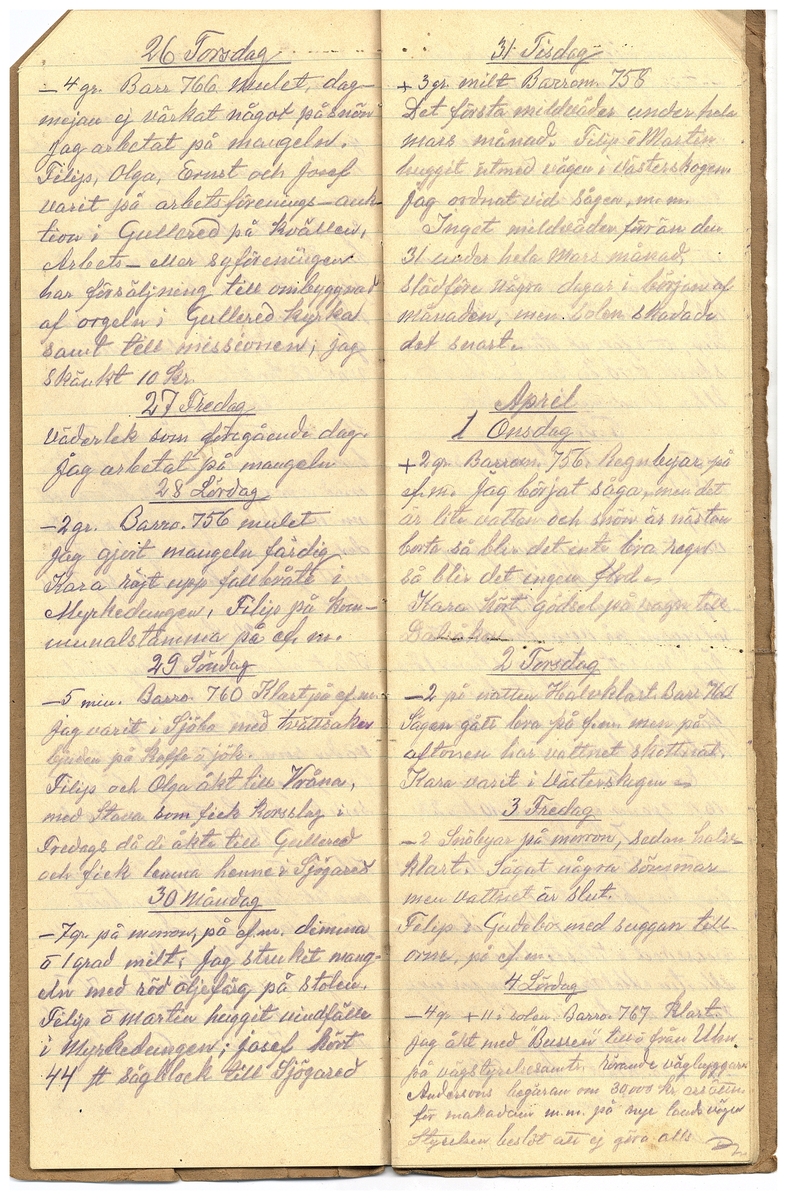 26 Torsdag
- 4 gr. Barr 766. Mulet, dag-
mejan ej värkat något på snön
Jag arbetat på mangeln.
Filip, Olga, Ernst och Josef
varit på arbetsförenings-auk-
tion i Gullered på kvällen,
Arbets- eller syföreningen
har försäljning till ombyggnad
af orgeln i Gullered kyrka
samt till missionen; jag
skänkt 10 Kr.
27 Fredag
Väderlek som föregående dag.
Jag arbetat på mangeln
28 Lördag
- 2 gr. Barro. 756 mulet
Jag gjort mangeln färdig
Kara röjt upp fallbråte i
Myrkedungen, Filip på kom-
munalstämma på ef. m.
29 Söndag
- 5 min. Barro. 760 Klart på ef. m.
Jag varit i Sjöbo med tvättsaker
bjuden på kaffe ö jök.
Filip och Olga åkt till Vråna,
med Stava som fick korsslag i
Fredags då di åkte till Gullered
och fick lemna henne i Sjögared
30 Måndag
- 7 gr. på morron, på ef. m. dimma
ö 1 grad milt; Jag struket mang-
eln med röd oljefärg på stolen.
Filip ö Martin hugget vindfälle
i Myrkedungen; Josef kört
44 st sågblock till Sjögared
31 Tisdag
+ 3 gr. milt Barrom. 758
Det första mildväder under hela
mars månad. Filip ö Martin
huggit utmed vägen i Västerskogen
Jag ordnat vid sågen, m. m.
Inget mildväder förrän den
31 under hela Mars månad,
slädföre några dagar i början af
månaden, men solen skadade
det snart.
April
1 Onsdag
+ 2 gr. Barrom. 756. Regnbyar på
ef. m. Jag börjat såga, men det
är lite vatten och snön är nästan
borta så blir det inte bra regn
så blir det ingen flod
Kara kört gödsel på vagn till
2 Torsdag
- 2 på natten Halvklart. Barr
Sågen gått bra på f. m. men på
aftonen har vattnet skottnat.
Kara varit i Västerskogen
3 Fredag
- 2 Snöbyar på morron, sedan halv-
klart. Sågat några
men vattnet är slut.
Filip i Gudebo med suggan till
orne, på ef. m.
4 Lördag
- 4 gr. + 11 i solen. Barro. 767. Klart.
Jag åkt med Bussen till ö från Uhn.
på vägstyrelsesamtr. rörande vägbyggare
Anderssons begäran om 30000 kr
för makadam m. m. på nye landsvägen
Styrelsen beslöt att ej göra